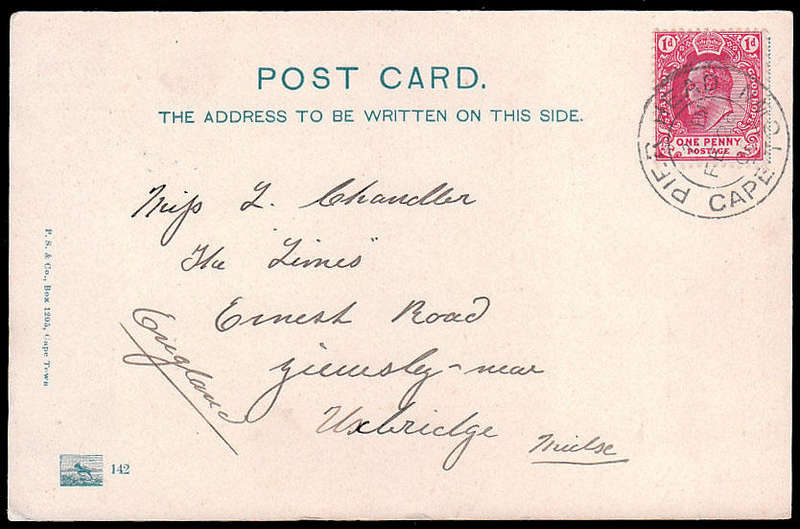 POST CARD.
THE ADDRESS TO BE WRITTEN ON THIS SIDE.
1d 1d
GOOD HOPE
ONE PENNY
POSTAGE
PIER HEAD CAPE TOWN
Miss L. Chandler
The "Limes"
Ernest Road
near
Uxbridge
England
P. S. & Co., Box 1205, Cape Town
142